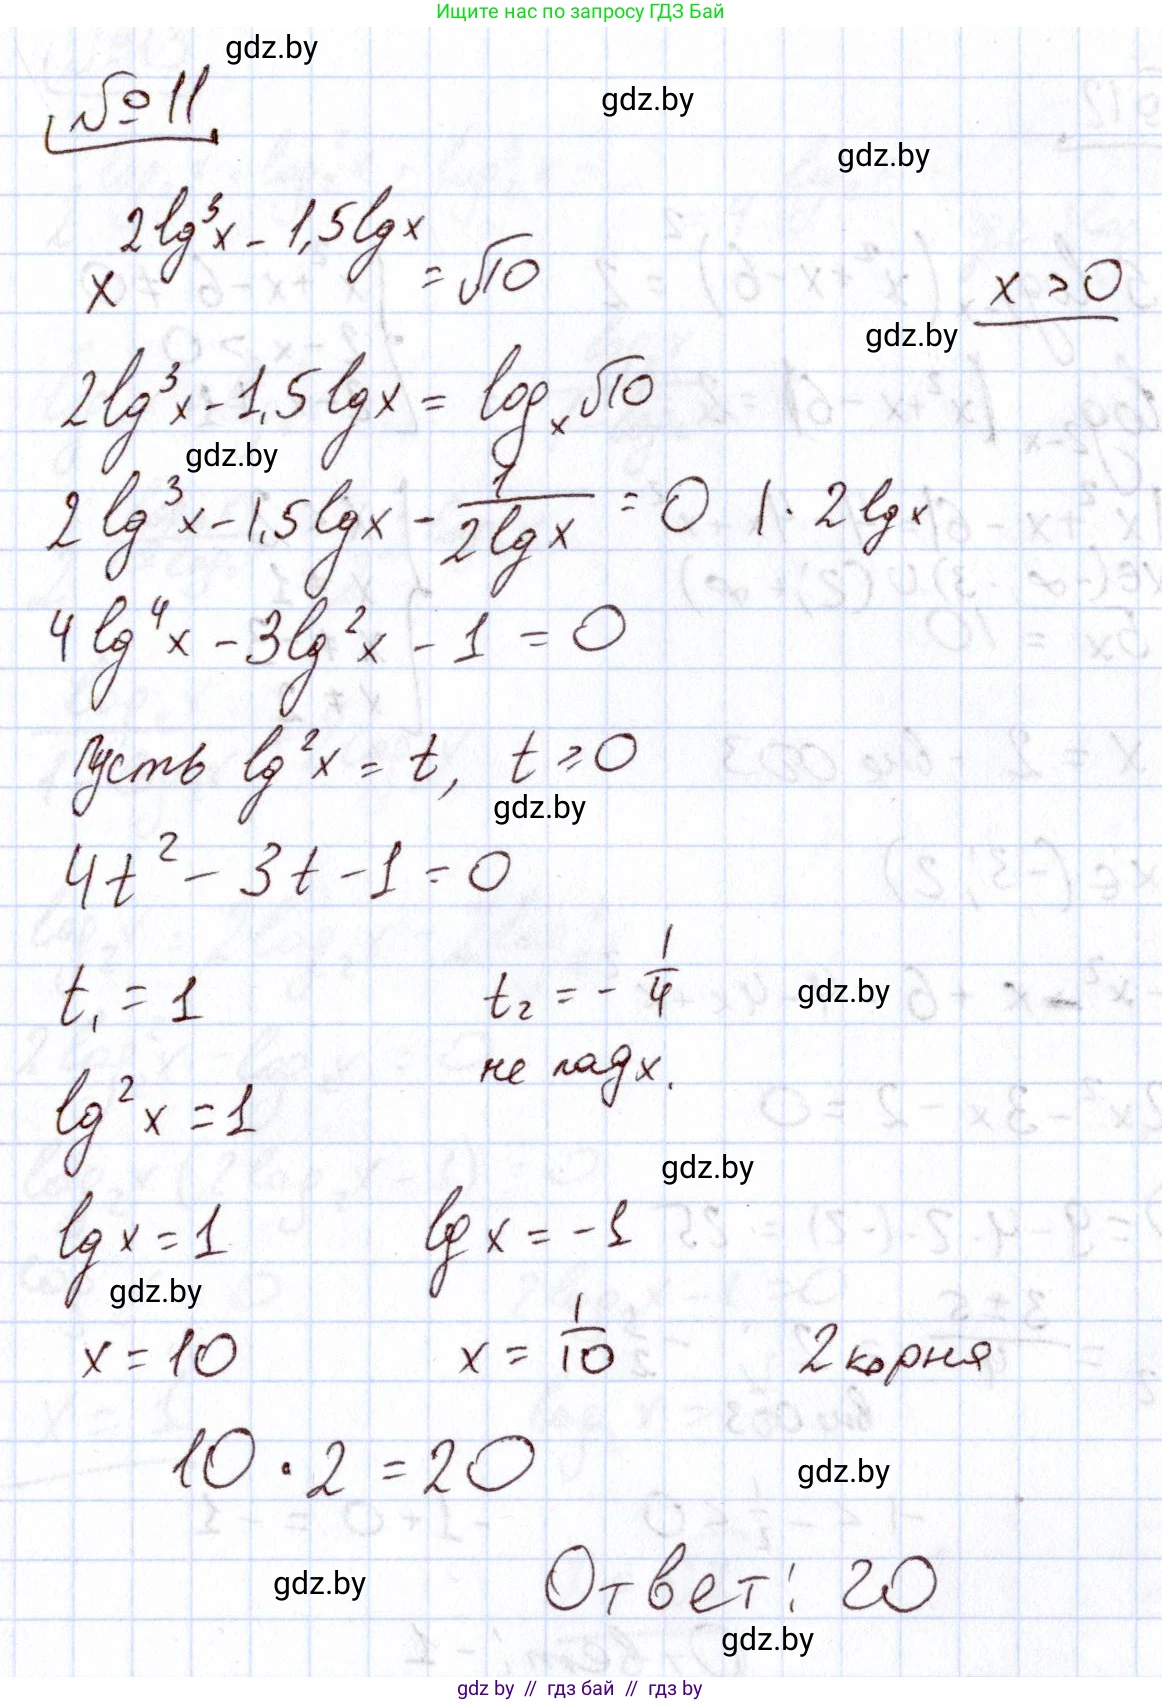 Ищите нас по запросу ГДЗ Бай
gdz.by
№ 11
gdz.by
gdz.by
x^(2lg³x - 1,5lgx) = √10
x > 0
gdz.by
2lg³x - 1,5lgx = log_x √10
gdz.by
2lg³x - 1,5lgx - 1/(2lgx) = 0 | · 2lgx
4lg⁴x - 3lg²x - 1 = 0
Пусть lg²x = t, t ≥ 0
gdz.by
4t² - 3t - 1 = 0
t₁ = 1 t₂ = - 1/4
gdz.by
не подх.
lg²x = 1
gdz.by
lgx = 1 lgx = -1
gdz.by
x = 10 x = 1/10 2 корня
10 · 2 = 20
gdz.by
gdz.by
Ответ: 20
gdz.by
gdz.by // гдз бай // гдз by